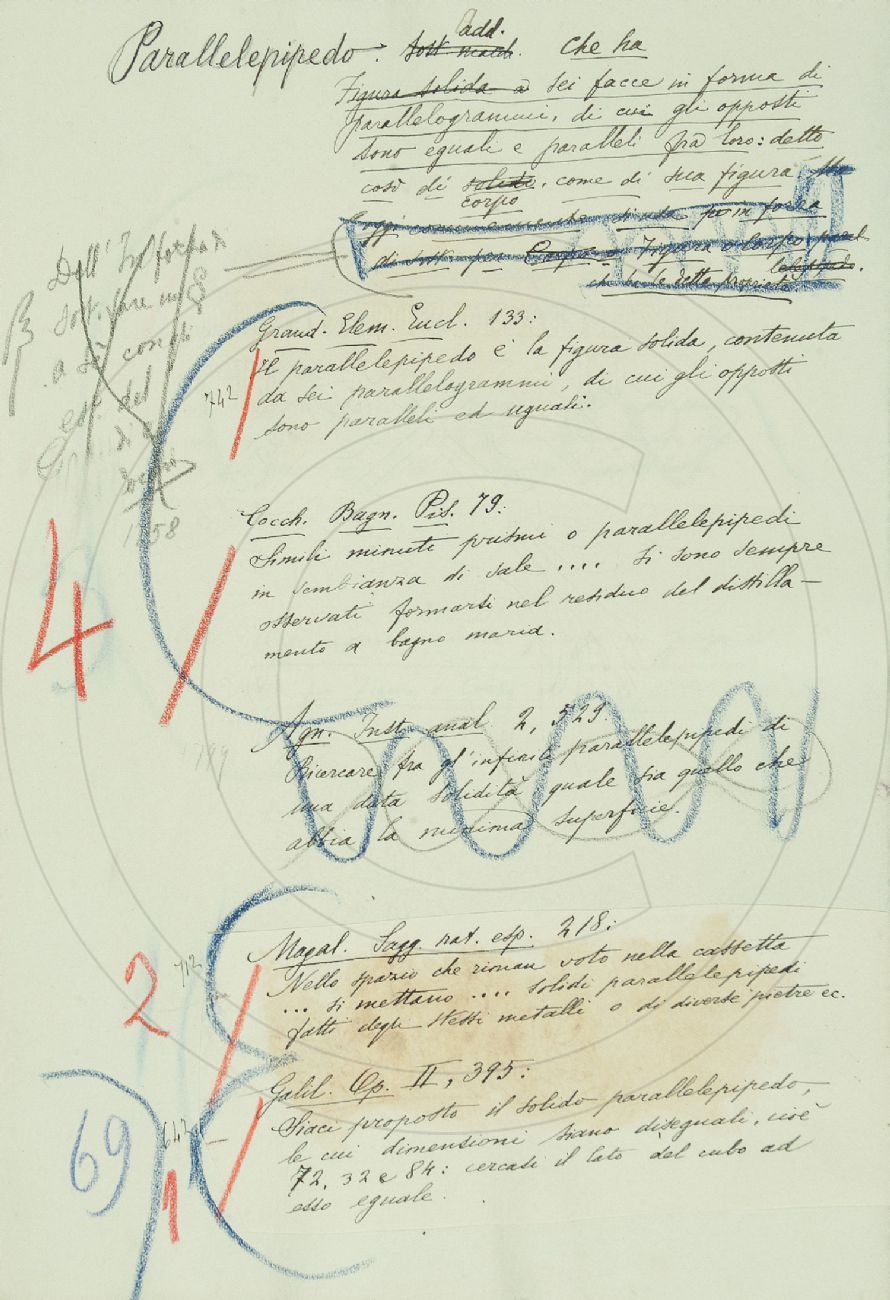 Parallelepipedo. Sost. masch. add. che ha
Figura solida a sei facce in forma di
parallelogrammi, di cui gli opposti
sono eguali e paralleli fra loro: detto
così di solido, come di sua figura.
corpo
oggi comunemente si usa in forza
di sost. per Corpo o Figura o corpo paral-
lelepipedo.
che ha le dette proprietà
Dall'
sost.
a sei
del
1758
β
Grand. Elem. Eucl. 133:
Il parallelepipedo è la figura solida, contenuta
742
da sei parallelogrammi, di cui gli opposti
sono paralleli ed uguali.
Cocch. Bagn. Pis. 79:
Simili minuti prismi o parallelepipedi
in sembianza di sale .... si sono sempre
osservati formarsi nel residuo del distilla-
mento a bagno maria.
4
Agn. Inst. anal. 2, 529.
Ricercare fra gl'infiniti parallelepipedi di
una data solidità quale sia quello che
abbia la minima superficie.
1799
Magal. Sagg. nat. esp. 218:
Nello spazio che riman voto nella cassetta
... si mettano .... solidi parallelepipedi
fatti degli stessi metalli o di diverse pietre ec.
2
712
Galil. Op. II, 395:
Siaci proposto il solido parallelepipedo,
le cui dimensioni siano diseguali, cioè
72, 32 e 84: cercasi il lato del cubo ad
esso eguale.
69
642
1